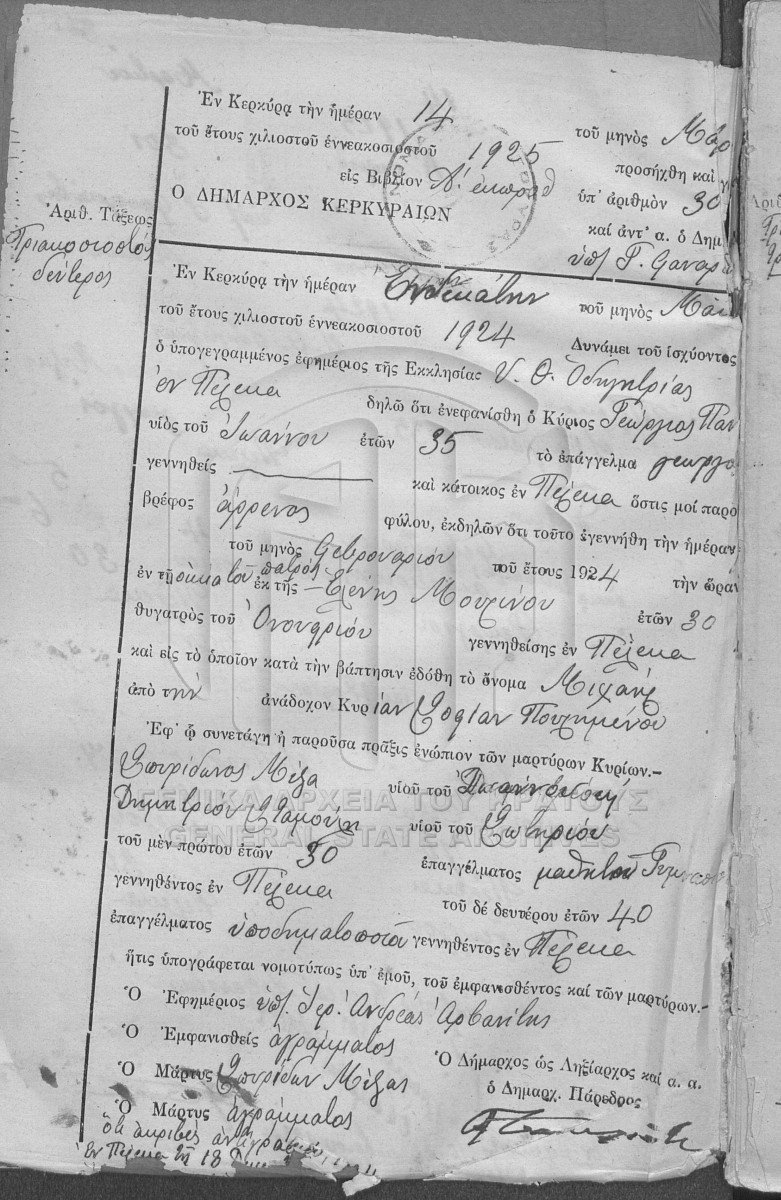 Ἐν Κερκύρᾳ τὴν ἡμέραν 14 τοῦ μηνὸς Μαρ
τοῦ ἔτους χιλιοστοῦ ἐννεακοσιοστοῦ 1925 προσήχθη καὶ
εἰς Βιβλίον Α΄. ὑπ' ἀριθμὸν 30
Ο ΔΗΜΑΡΧΟΣ ΚΕΡΚΥΡΑΙΩΝ καί ἀντ' α. ὁ Δημ
Ἀριθ. Τάξεως
Τριακοσιοστὸς
δεύτερος
Ἐν Κερκύρᾳ τὴν ἡμέραν Ἑνδεκάτην τοῦ μηνὸς
τοῦ ἔτους χιλιοστοῦ ἐννεακοσιοστοῦ 1924 Δυνάμει τοῦ ἰσχύοντος
ὁ ὑπογεγραμμένος ἐφημέριος τῆς Ἐκκλησίας Υ. Θ. Ὁδηγητρίας
ἐν Πέλεκα δηλῶ ὅτι ἐνεφανίσθη ὁ Κύριος Γεώργιος Παν
υἱὸς τοῦ Ἰωάννου ἐτῶν 35 τὸ ἐπάγγελμα γεωργο
γεννηθεὶς καὶ κάτοικος ἐν Πέλεκα ὅστις μοί παρο
βρέφος ἄρρενος φύλου, ἐκδηλῶν ὅτι τοῦτο ἐγεννήθη τὴν ἡμέραν
τοῦ μηνὸς Φεβρουαρίου τοῦ ἔτους 1924 τὴν ὥραν
ἐν τῇ οἰκίᾳ τοῦ πατρός ἐκ τῆς Ἑλένης Μουζίνου ἐτῶν 30
θυγατρὸς τοῦ Ὀνουφρίου γεννηθείσης ἐν Πέλεκα
καὶ εἰς τὸ ὁποῖον κατὰ τὴν βάπτισιν ἐδόθη τὸ ὄνομα Μιχαήλ
ἀπὸ τὴν ἀνάδοχον Κυρίαν Σοφίαν
Ἐφ' ᾧ συνετάγη ἡ παροῦσα πρᾶξις ἐνώπιον τῶν μαρτύρων Κυρίων.-
Σπυρίδωνος Μέξα υἱοῦ τοῦ
Δημητρίου Σταμούλη υἱοῦ τοῦ Σωτηρίου
ΓΕΝΙΚΑ ΑΡΧΕΙΑ ΤΟΥ ΚΡΑΤΟΥΣ
GENERAL STATE ARCHIVES
τοῦ μὲν πρώτου ἐτῶν 30 ἐπαγγέλματος μαθητοῦ
γεννηθέντος ἐν Πέλεκα τοῦ δέ δευτέρου ἐτῶν 40
ἐπαγγέλματος ὑποδηματοποιοῦ γεννηθέντος ἐν Πέλεκα
ἥτις ὑπογράφεται νομοτύπως ὑπ' ἐμοῦ, τοῦ ἐμφανισθέντος καί τῶν μαρτύρων.-
Ὁ Ἐφημέριος ὑπ. Ἱερ. Ἀνδρέας Ἀρβανίτης
Ὁ Ἐμφανισθείς ἀγράμματος
Ὁ Μάρτυς Σπυρίδων Μέξας
Ὁ Δήμαρχος ὡς Ληξίαρχος καί α. α.
ὁ Δημαρχ. Πάρεδρος
Ὁ Μάρτυς ἀγράμματος
ὅτι ἀκριβὲς ἀντίγραφον
Ἐν Πέλεκα τῇ 18